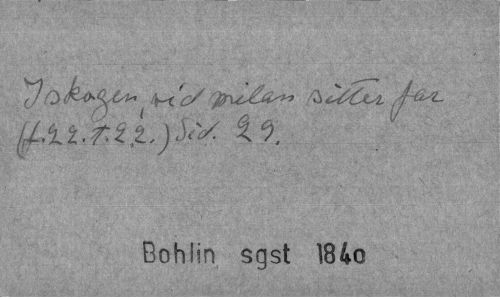 I skogen, vid milan sitter far
(f.22.t.22.) Sid. 29.
Bohlin sgst 1840